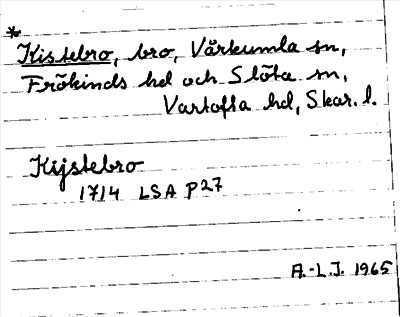 *
Kistebro, bro, Vårkumla sn,
Frökinds hd och Slöta sn,
Vartofta hd, Skar. l.
Kijstebro
1714 LSA P27
A.-L.J. 1965